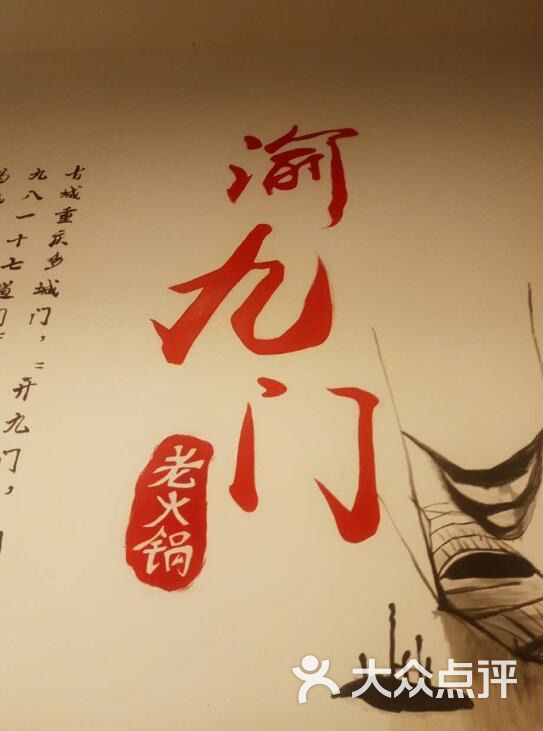 渝九门
老火锅
古城重庆多城门，"开九门，
九八一十七道门"
大众点评